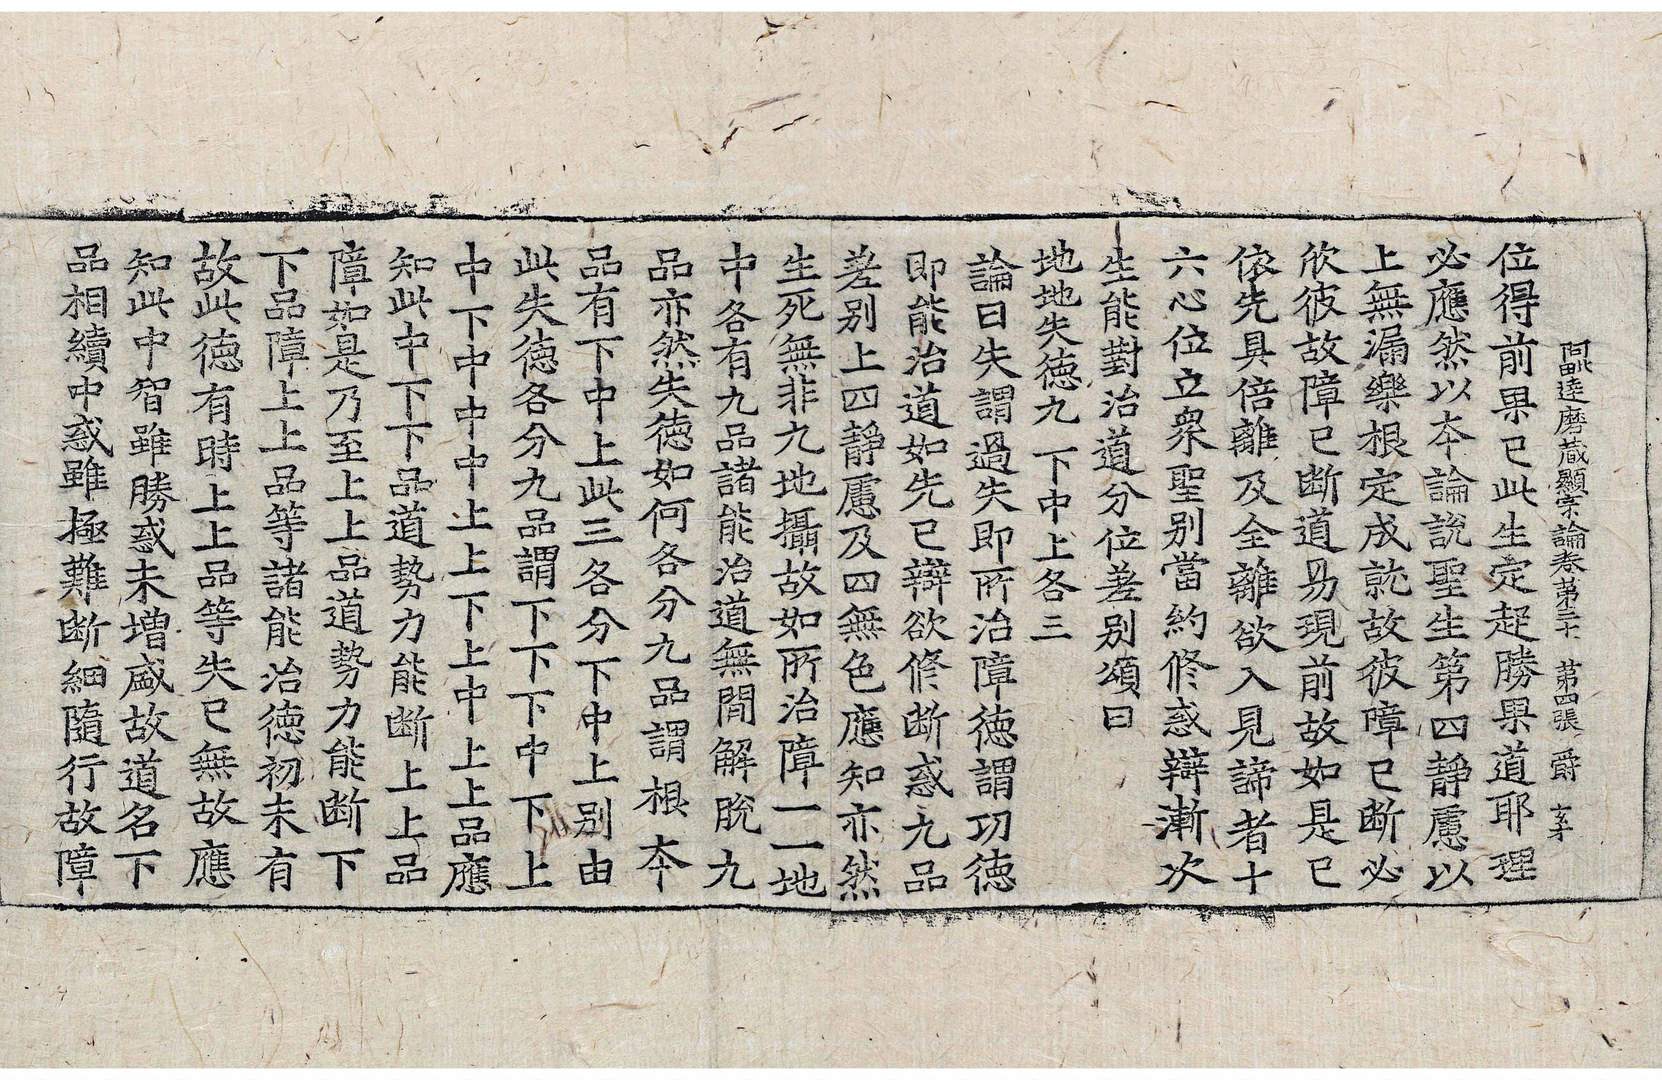 阿毗達磨藏顯宗論卷第三十 第四張 爵
位得前果已此生定起勝果道耶理
必應然以本論說聖生第四靜慮以
上無漏樂根定成就故彼障已断必
欣彼故障已断道易現前故如是已
依先具倍離及全離欲入見諦者十
六心位立衆聖別當約修惑辯漸次
生能對治道分位差別頌曰
地地失德九 下中上各三
論曰失謂過失即所治障德謂功德
即能治道如先已辯欲修断惑九品
差別上四靜慮及四無色應知亦然
生死無非九地攝故如所治障一一地
中各有九品諸能治道無間解脫九
品亦然失德如何各分九品謂根本
品有下中上此三各分下中上別由
此失德各分九品謂下下下中下上
中下中中中上上下上中上上品應
知此中下下品道勢力能断上上品
障如是乃至上上品道勢力能断下
下品障上上品等諸能治德初未有
故此德有時上上品等失已無故應
知此中智雖勝惑未增盛故道名下
品相續中惑雖極難断細隨行故障